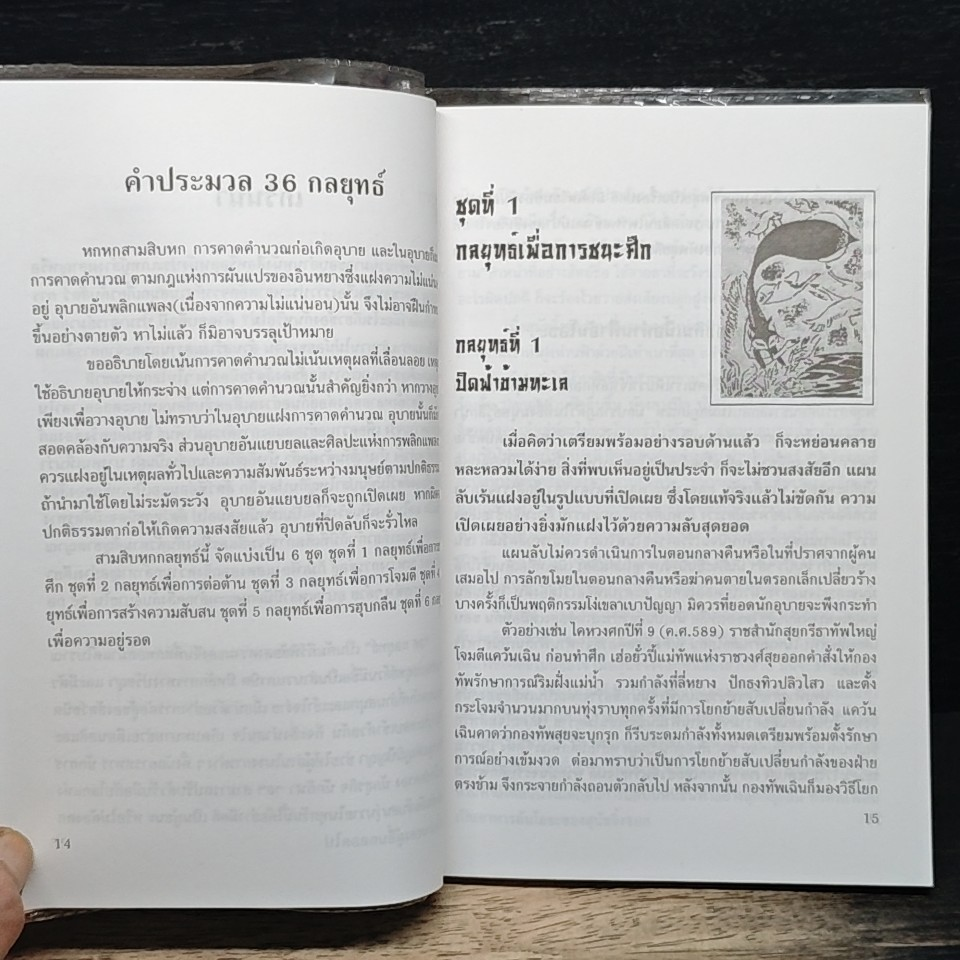 คำประมวล 36 กลยุทธ์
หกหกสามสิบหก การคาดคำนวณก่อเกิดอุบาย และในอุบายก็มี
การคาดคำนวณ ตามกฎแห่งการผันแปรของอินหยางซึ่งแฝงความไม่แน่นอน
อยู่ อุบายอันพลิกแพลง(เนื่องจากความไม่แน่นอน)นั้น จึงไม่อาจฝืนกำหนด
ขึ้นอย่างตายตัว หาไม่แล้ว ก็มิอาจบรรลุเป้าหมาย
ขออธิบายโดยเน้นการคาดคำนวณไม่เน้นเหตุผลที่เลื่อนลอย
ใช้อธิบายอุบายให้กระจ่าง แต่การคาดคำนวณนั้นสำคัญยิ่งกว่า
เพียงเพื่อวางอุบาย ไม่ทราบว่าในอุบายแฝงการคาดคำนวณ อุบายนั้นก็
สอดคล้องกับความจริง ส่วนอุบายอันแยบยลและศิลปะแห่งการพลิกแพลง
ควรแฝงอยู่ในเหตุผลทั่วไปและความสัมพันธ์ระหว่างมนุษย์ตามปกติธรรม
ถ้านำมาใช้โดยไม่ระมัดระวัง อุบายอันแยบยลก็จะถูกเปิดเผย
ปกติธรรมดาก่อให้เกิดความสงสัยแล้ว อุบายที่ปิดลับก็จะรั่วไหล
สามสิบหกกลยุทธ์นี้ จัดแบ่งเป็น 6 ชุด ชุดที่ 1 กลยุทธ์เพื่อการ
ศึก ชุดที่ 2 กลยุทธ์เพื่อการต่อต้าน ชุดที่ 3 กลยุทธ์เพื่อการโจมตี ชุดที่ 4
ยุทธ์เพื่อการสร้างความสับสน ชุดที่ 5 กลยุทธ์เพื่อการฮุบกลืน ชุดที่ 6
เพื่อความอยู่รอด
14
ชุดที่ 1
กลยุทธ์เพื่อการชนะศึก
กลยุทธ์ที่ 1
ปิดฟ้าข้ามทะเล
เมื่อคิดว่าเตรียมพร้อมอย่างรอบด้านแล้ว ก็จะหย่อนคลาย
หละหลวมได้ง่าย สิ่งที่พบเห็นอยู่เป็นประจำ ก็จะไม่ชวนสงสัยอีก แผน
ลับเร้นแฝงอยู่ในรูปแบบที่เปิดเผย ซึ่งโดยแท้จริงแล้วไม่ขัดกัน ความ
เปิดเผยอย่างยิ่งมักแฝงไว้ด้วยความลับสุดยอด
แผนลับไม่ควรดำเนินการในตอนกลางคืนหรือในที่ปราศจากผู้คน
เสมอไป การลักขโมยในตอนกลางคืนหรือฆ่าคนตายในตรอกเล็กเปลี่ยวร้าง
บางครั้งก็เป็นพฤติกรรมโง่เขลาเบาปัญญา มิควรที่ยอดนักอุบายจะพึงกระทำ
ตัวอย่างเช่น ไคหวงศกปีที่ 9 (ค.ศ.589) ราชสำนักสุยกรีธาทัพใหญ่
โจมตีแคว้นเฉิน ก่อนทำศึก เฮ่อยั่วปี้แม่ทัพแห่งราชวงศ์สุยออกคำสั่งให้กอง
ทัพรักษาการณ์ริมฝั่งแม่น้ำ รวมกำลังที่ลี่หยาง ปักธงทิวปลิวไสว และตั้ง
กระโจมจำนวนมากบนทุ่งราบทุกครั้งที่มีการโยกย้ายสับเปลี่ยนกำลัง แคว้น
เฉินคาดว่ากองทัพสุยจะบุกรุก ก็รีบระดมกำลังทั้งหมดเตรียมพร้อมตั้งรักษา
การณ์อย่างเข้มงวด ต่อมาทราบว่าเป็นการโยกย้ายสับเปลี่ยนกำลังของฝ่าย
ตรงข้าม จึงกระจายกำลังถอนตัวกลับไป หลังจากนั้น กองทัพเฉินก็มองวิธีโยก
15